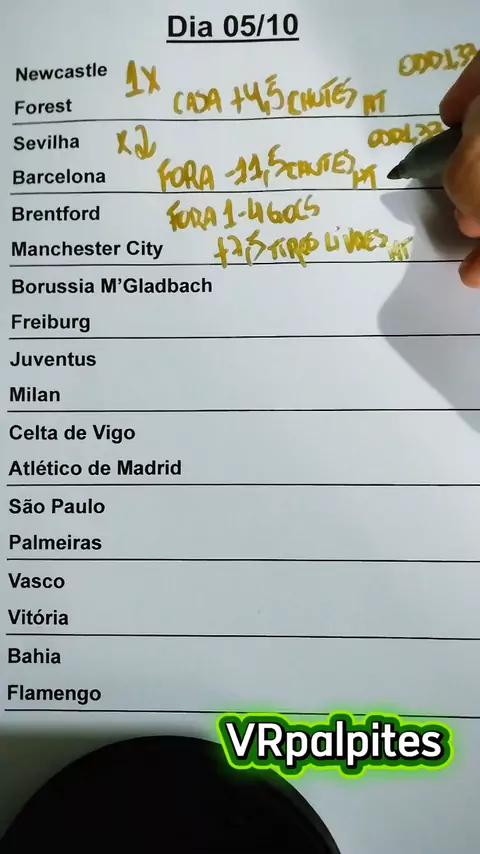 Dia 05/10
Newcastle 1X ODD1,33
Forest CASA +4,5 CHUTES HT
Sevilha X2 ODD1,33
Barcelona FORA -11,5 CHUTES HT
Brentford FORA 1-4 GOLS
Manchester City +7,5 TIROS LIVRES HT
Borussia M'Gladbach
Freiburg
Juventus
Milan
Celta de Vigo
Atlético de Madrid
São Paulo
Palmeiras
Vasco
Vitória
Bahia
Flamengo
VRpalpites